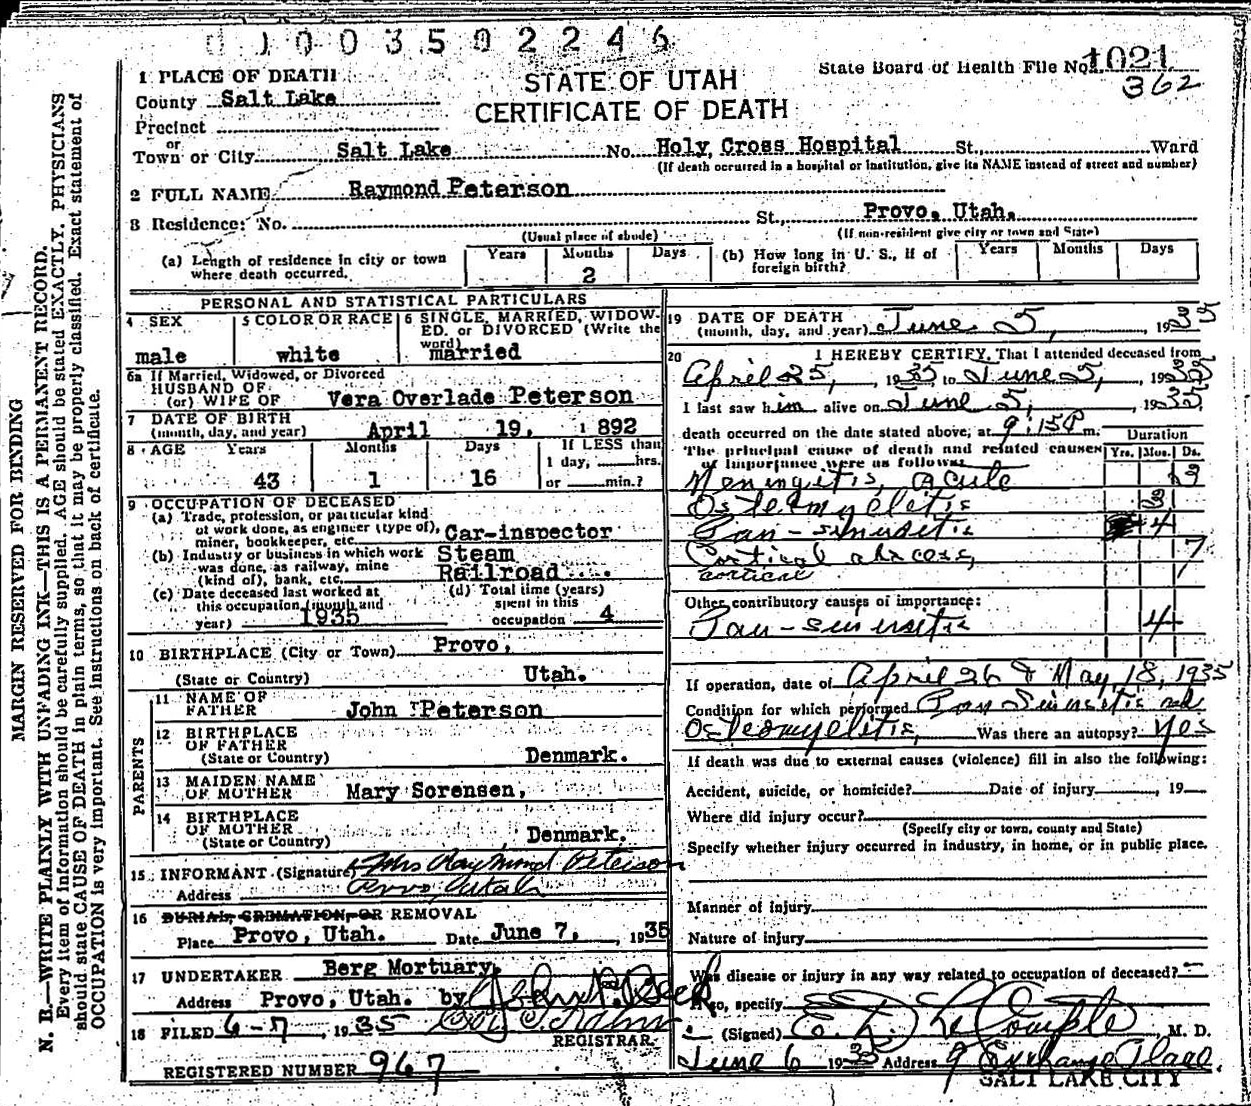 0 1 0 0 3 5 0 2 2 4 6
State Board of Health File No. 1021
362
STATE OF UTAH
CERTIFICATE OF DEATH
1 PLACE OF DEATH
County Salt Lake
Precinct
or
Town or City Salt Lake No. Holy Cross Hospital St., Ward
(If death occurred in a hospital or institution, give its NAME instead of street and number)
2 FULL NAME Raymond Peterson
3 Residence: No. St., Provo, Utah.
(Usual place of abode) (If non-resident give city or town and State)
(a) Length of residence in city or town where death occurred. Years Months 2 Days
(b) How long in U. S., if of foreign birth? Years Months Days
PERSONAL AND STATISTICAL PARTICULARS
4 SEX male
5 COLOR OR RACE white
6 SINGLE, MARRIED, WIDOWED, or DIVORCED (Write the word) married
6a If Married, Widowed, or Divorced
HUSBAND OF
(or) WIFE OF Vera Overlade Peterson
7 DATE OF BIRTH
(month, day, and year) April 19, 1892
8 AGE Years 43 Months 1 Days 16 If LESS than 1 day, hrs. or min.?
9 OCCUPATION OF DECEASED
(a) Trade, profession, or particular kind of work done, as engineer (type of), miner, bookkeeper, etc. Car-inspector
(b) Industry or business in which work was done, as railway, mine (kind of), bank, etc. Steam Railroad
(c) Date deceased last worked at this occupation (month and year) 1935
(d) Total time (years) spent in this occupation 4
10 BIRTHPLACE (City or Town) Provo,
(State or Country) Utah.
PARENTS
11 NAME OF FATHER John Peterson
12 BIRTHPLACE OF FATHER
(State or Country) Denmark.
13 MAIDEN NAME OF MOTHER Mary Sorensen,
14 BIRTHPLACE OF MOTHER
(State or Country) Denmark.
15 INFORMANT (Signature) Mrs Raymond Peterson
Address Provo, Utah
16 BURIAL, CREMATION, OR REMOVAL
Place Provo, Utah. Date June 7, 1935
17 UNDERTAKER Berg Mortuary,
Address Provo, Utah. by
18 FILED 6-7, 1935
REGISTRAR.
REGISTERED NUMBER 967
19 DATE OF DEATH
(month, day, and year) June 5, 1935
20 I HEREBY CERTIFY, That I attended deceased from
April 25, 1935 to June 5, 1935
I last saw him alive on June 5, 1935
death occurred on the date stated above, at 9:15 P m. Duration
The principal cause of death and related causes of importance were as follows: Yrs. Mos. Ds.
Meningitis, acute
Osteomyelitis
Pan-sinusitis 4
Cortical abscess, 7
cortical
Other contributory causes of importance:
Pan-sinusitis 4
If operation, date of April 26 & May, 18, 1935
Condition for which performed Pan Sinusitis and
Osteomyelitis, Was there an autopsy? Yes
If death was due to external causes (violence) fill in also the following:
Accident, suicide, or homicide? Date of injury , 19
Where did injury occur?
(Specify city or town, county and State)
Specify whether injury occurred in industry, in home, or in public place.
Manner of injury
Nature of injury
Was disease or injury in any way related to occupation of deceased? -
If so, specify
(Signed) E. L. LeCompte, M. D.
June 6 1935 Address 9 Exchange Place.
SALT LAKE CITY
MARGIN RESERVED FOR BINDING
N. B.—WRITE PLAINLY WITH UNFADING INK—THIS IS A PERMANENT RECORD.
Every item of information should be carefully supplied. AGE should be stated EXACTLY. PHYSICIANS
should state CAUSE OF DEATH in plain terms, so that it may be properly classified. Exact statement of
OCCUPATION is very important. See instructions on back of certificate.